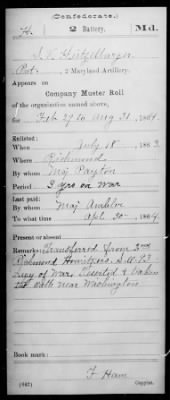 (Confederate.)
H. 2 Battery. Md.
Pvt., 2 Maryland Artillery.
Appears on
Company Muster Roll
of the organization named above,
for Feb 29 to Aug 31, 1864.
Enlisted:
When July 18, 1863
Where Richmond
By whom Maj Payton
Period 3 yrs or War
Last paid:
By whom Maj Ambler
To what time Apl 30, 1864.
Present or absent
Remarks: Transferred from 2nd
Richmond Howitzers S.O.
Secy of War. Deserted & taken
the oath near Washington
Book mark:
(642) F. Ham
Copyist.